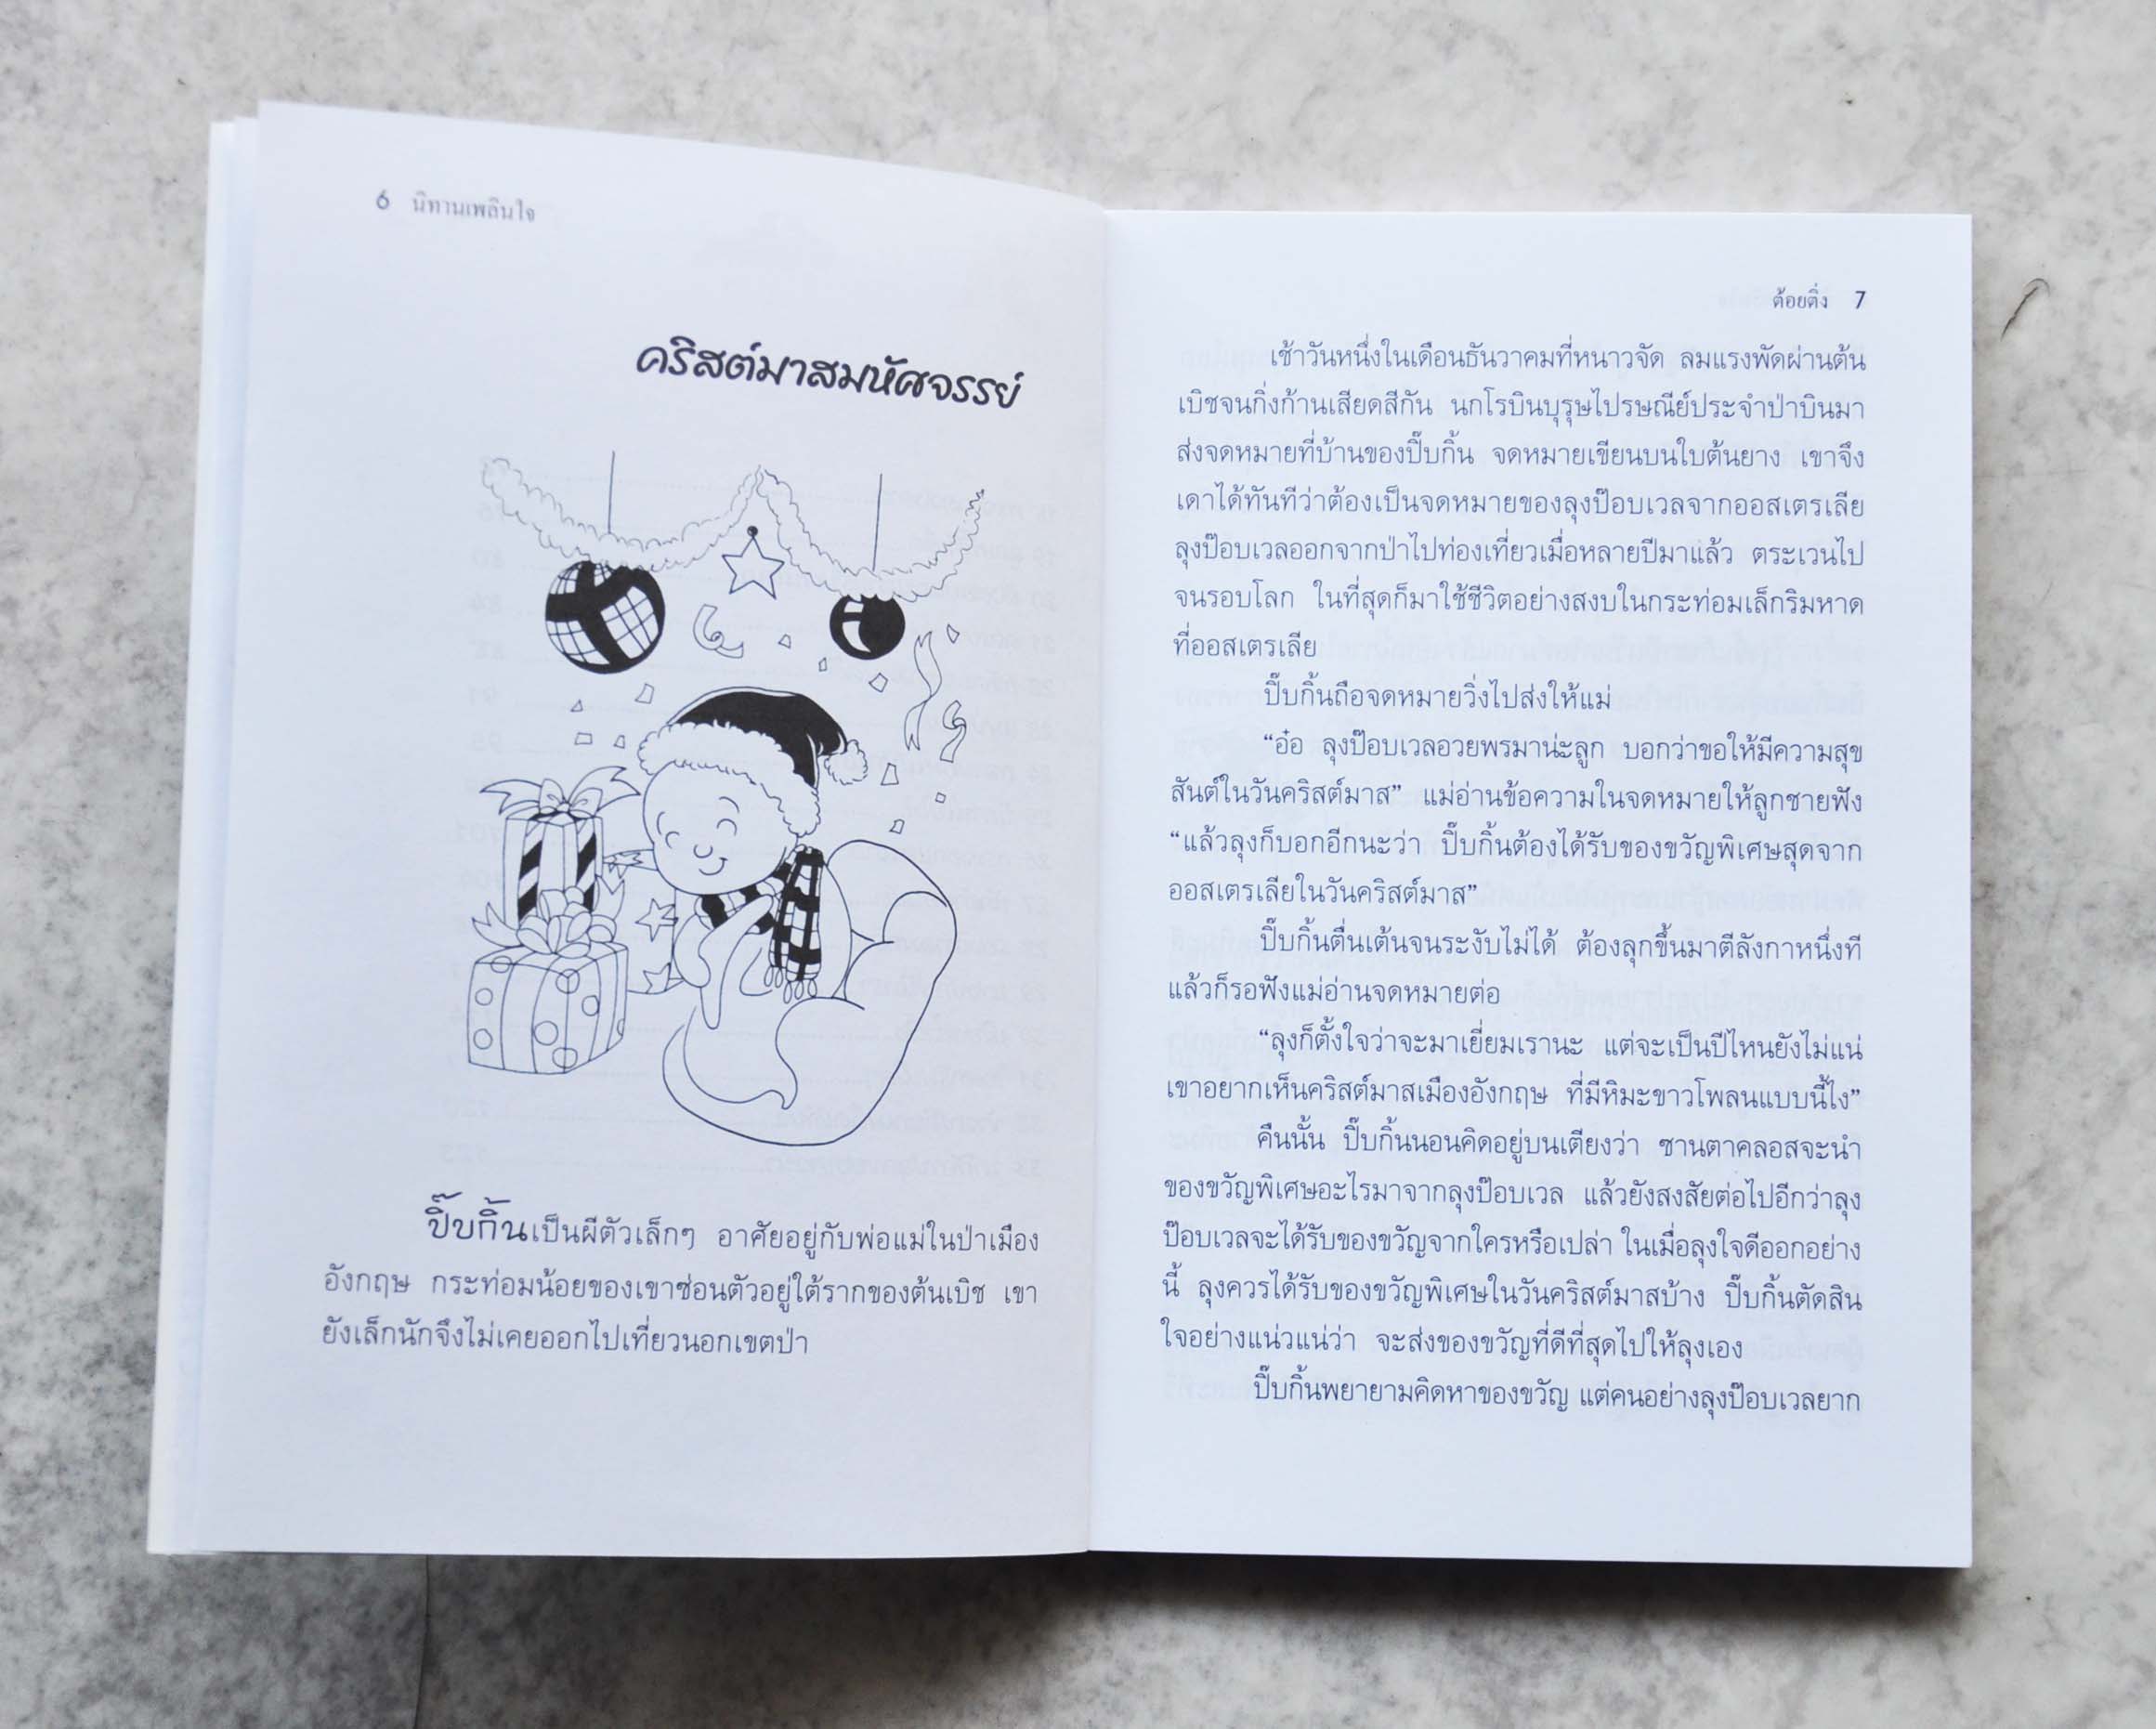 6 นิทานเพลินใจ
คริสต์มาสมหัศจรรย์
ปิ๊บกิ้นเป็นผีตัวเล็กๆ อาศัยอยู่กับพ่อแม่ในป่าเมือง
อังกฤษ กระท่อมน้อยของเขาซ่อนตัวอยู่ใต้รากของต้นเบิช เขา
ยังเล็กนักจึงไม่เคยออกไปเที่ยวนอกเขตป่า
ต้อยติ่ง 7
เช้าวันหนึ่งในเดือนธันวาคมที่หนาวจัด ลมแรงพัดผ่านต้น
เบิชจนกิ่งก้านเสียดสีกัน นกโรบินบุรุษไปรษณีย์ประจำป่าบินมา
ส่งจดหมายที่บ้านของปิ๊บกิ้น จดหมายเขียนบนใบต้นยาง เขาจึง
เดาได้ทันทีว่าต้องเป็นจดหมายของลุงป๊อบเวลจากออสเตรเลีย
ลุงป๊อบเวลออกจากป่าไปท่องเที่ยวเมื่อหลายปีมาแล้ว ตระเวนไป
จนรอบโลก ในที่สุดก็มาใช้ชีวิตอย่างสงบในกระท่อมเล็กริมหาด
ที่ออสเตรเลีย
ปิ๊บกิ้นถือจดหมายวิ่งไปส่งให้แม่
“อ๋อ ลุงป๊อบเวลอวยพรมาน่ะลูก บอกว่าขอให้มีความสุข
สันต์ในวันคริสต์มาส” แม่อ่านข้อความในจดหมายให้ลูกชายฟัง
“แล้วลุงก็บอกอีกนะว่า ปิ๊บกิ้นต้องได้รับของขวัญพิเศษสุดจาก
ออสเตรเลียในวันคริสต์มาส”
ปิ๊บกิ้นตื่นเต้นจนระงับไม่ได้ ต้องลุกขึ้นมาตีลังกาหนึ่งที
แล้วก็รอฟังแม่อ่านจดหมายต่อ
“ลุงก็ตั้งใจว่าจะมาเยี่ยมเรานะ แต่จะเป็นปีไหนยังไม่แน่
เขาอยากเห็นคริสต์มาสเมืองอังกฤษ ที่มีหิมะขาวโพลนแบบนี้ไง”
คืนนั้น ปิ๊บกิ้นนอนคิดอยู่บนเตียงว่า ซานตาคลอสจะนำ
ของขวัญพิเศษอะไรมาจากลุงป๊อบเวล แล้วยังสงสัยต่อไปอีกว่าลุง
ป๊อบเวลจะได้รับของขวัญจากใครหรือเปล่า ในเมื่อลุงใจดีออกอย่าง
นี้ ลุงควรได้รับของขวัญพิเศษในวันคริสต์มาสบ้าง ปิ๊บกิ้นตัดสิน
ใจอย่างแน่วแน่ว่า จะส่งของขวัญที่ดีที่สุดไปให้ลุงเอง
ปิ๊บกิ้นพยายามคิดหาของขวัญ แต่คนอย่างลุงป๊อบเวลยาก